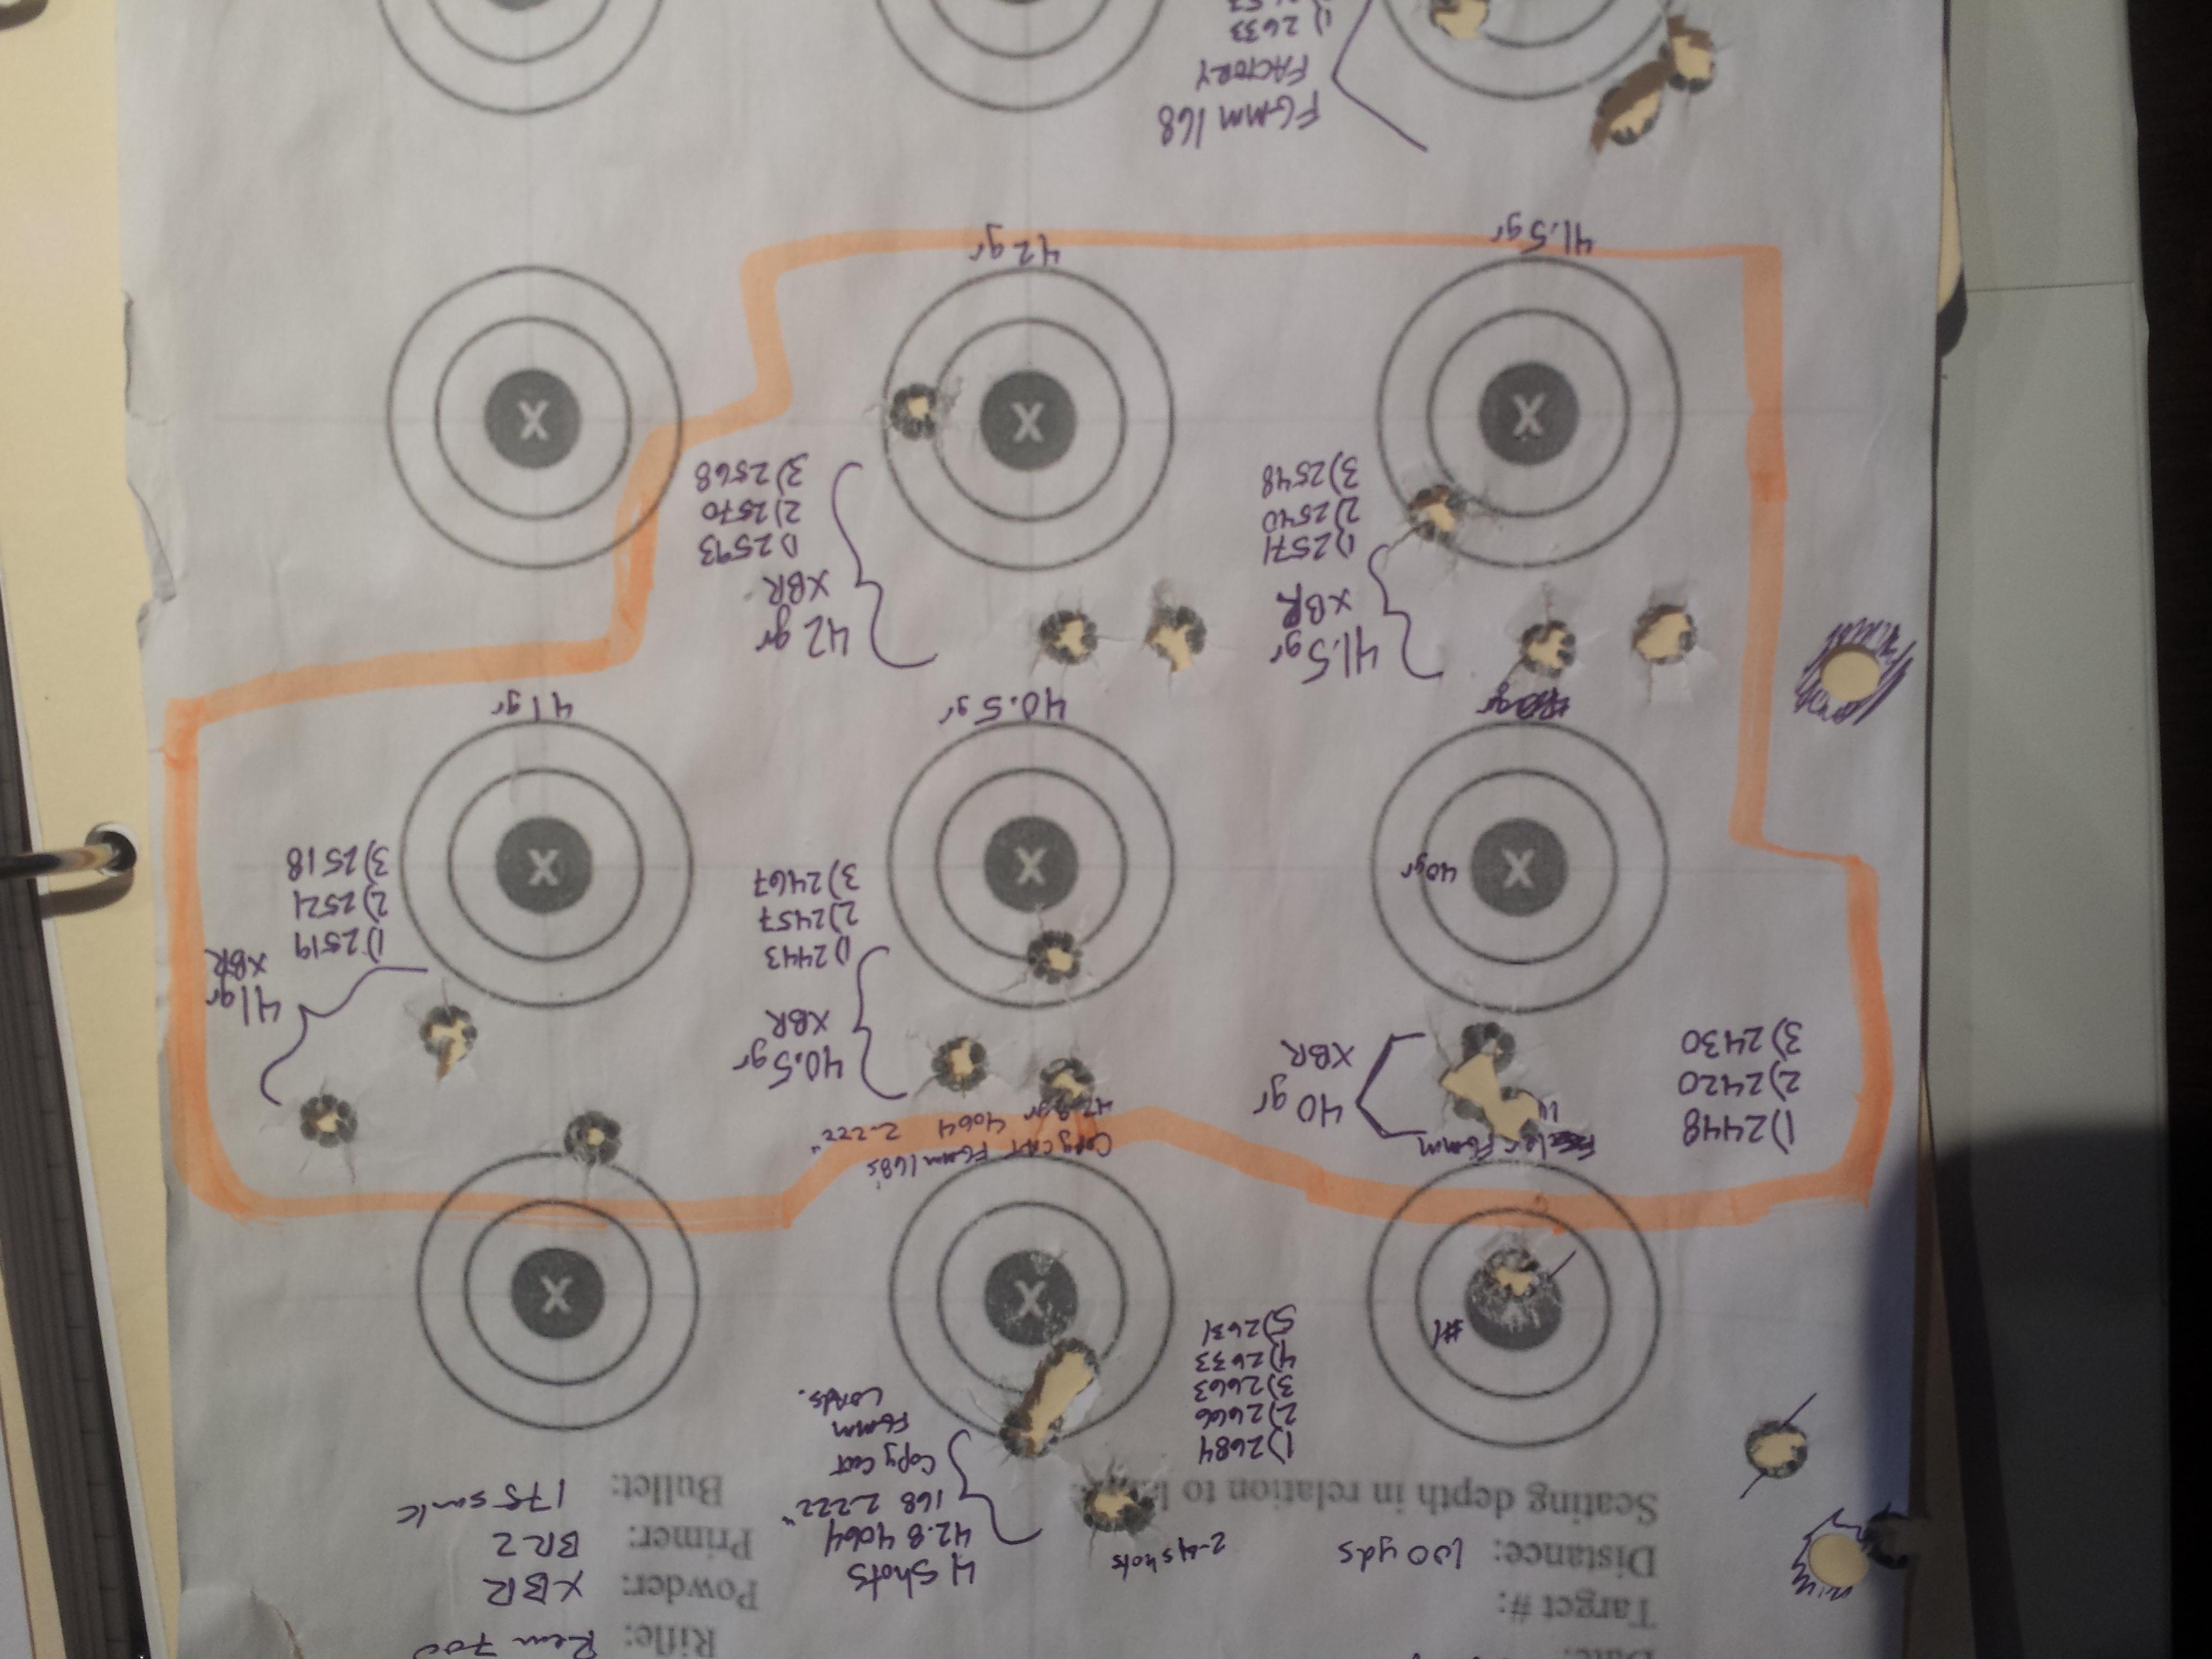 Date:
Rifle: Rem 700
Target #:
Powder: XBR
Distance: 100 yds
Primer: BR2
Seating depth in relation to
Bullet: 175 smk
2-4 shots
4 shots
42.8 4064
168 2.222"
Copy Cat
FGMM
Loads.
1) 2684
2) 2666
3) 2663
4) 2633
5) 2631
#1
X
X
FGMM
Copy Cat FGMM 168s
42.8gr 4064 2.222"
1) 2448
2) 2420
3) 2430
40gr
XBR
40.5gr
XBR
1) 2443
2) 2457
3) 2467
41gr
XBR
1) 2519
2) 2521
3) 2518
X
40gr
X
X
40.5gr
41gr
41.5gr
XBR
1) 2571
2) 2540
3) 2548
42gr
XBR
1) 2593
2) 2570
3) 2568
X
X
X
41.5gr
42gr
FGMM 168
FACTORY
1) 2633